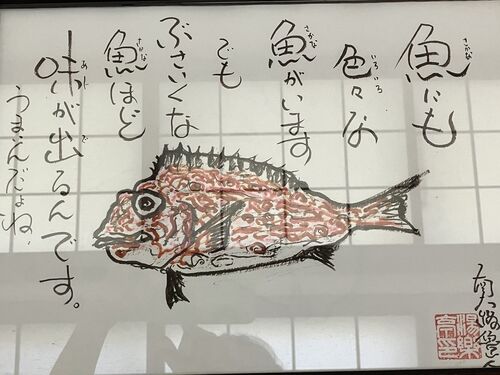 魚にも
色々な
魚がいます
でも
ぶさいくな
魚ほど
味が出るんです。
うまいんだよね、